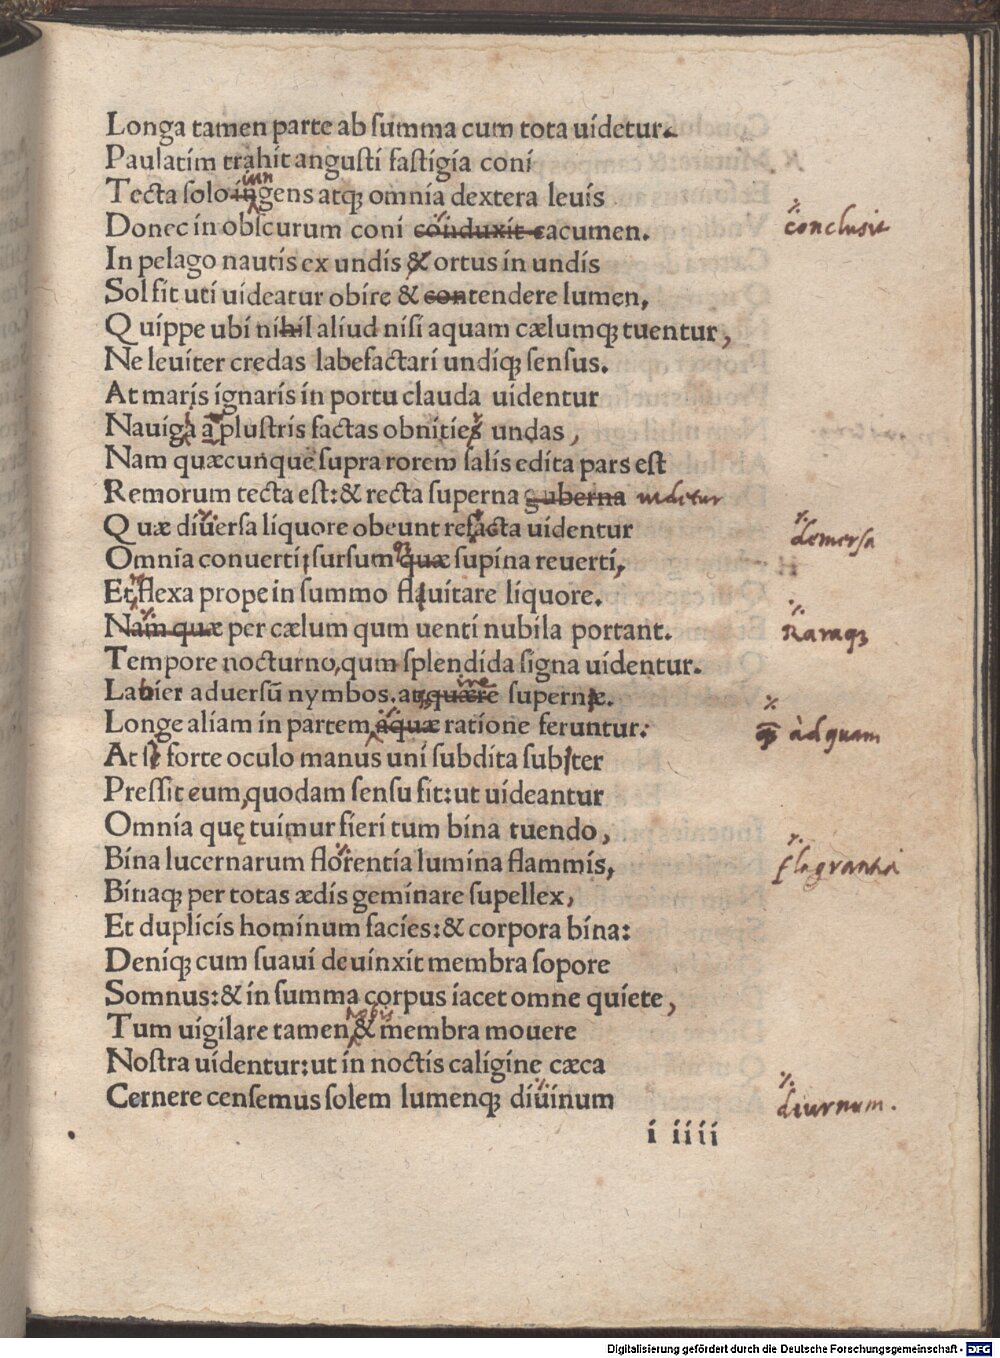 Longa tamen parte ab summa cum tota uidetur.
Paulatim trahit angusti fastigia coni
iun
Tecta solo ingens atq; omnia dextera leuis
Donec in obscurum coni conduxit cacumen.
conclusit
In pelago nautis ex undis & ortus in undis
Sol fit uti uideatur obire & contendere lumen,
Quippe ubi nihil aliud nisi aquam cælumq; tuentur,
Ne leuiter credas labefactari undiq; sensus.
At maris ignaris in portu clauda uidentur
Nauigia aplustris factas obnitier undas,
Nam quæcunque supra rorem salis edita pars est
Remorum tecta est: & recta superna guberna uidetur
Quæ diuersa liquore obeunt refacta uidentur
demersa
Omnia conuerti, sursum quæ supina reuerti,
Et flexa prope in summo fluuitare liquore.
Nam quæ per cælum qum uenti nubila portant.
Raraq;
Tempore nocturno, qum splendida signa uidentur.
ire
Labier aduersū nymbos. atquære supernæ.
Longe aliam in partem aquæ ratione feruntur:
ꝙ àd quam
At si forte oculo manus uni subdita subter
Pressit eum, quodam sensu fit: ut uideantur
Omnia quę tuimur fieri tum bina tuendo,
Bina lucernarum florentia lumina flammis,
flagrantia
Binaq; per totas ædis geminare supellex,
Et duplicis hominum facies: & corpora bina:
Deniq; cum suaui deuinxit membra sopore
Somnus: & in summa corpus iacet omne quiete,
nobis
Tum uigilare tamen & membra mouere
Nostra uidentur: ut in noctis caligine cæca
Cernere censemus solem lumenq; diuinum
diurnum.
i iiii
Digitalisierung gefördert durch die Deutsche Forschungsgemeinschaft - DFG